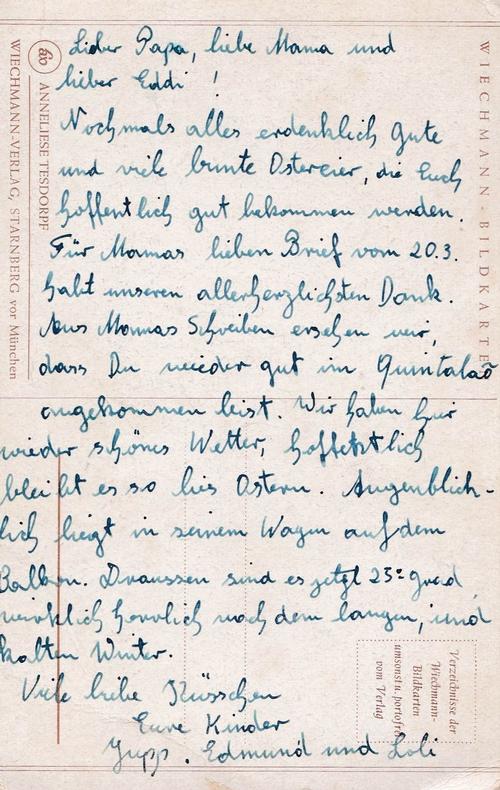 Lieber Papa, liebe Mama und
lieber Eddi !
Nochmals alles erdenklich Gute
und viele bunte Ostereier, die Euch
hoffentlich gut bekommen werden.
Für Mamas lieben Brief vom 20.3.
habt unseren allerherzlichsten Dank.
Aus Mamas Schreiben ersehen wir,
dass Du wieder gut im Quintalaõ
angekommen bist. Wir haben hier
wieder schönes Wetter, hoffentlich
bleibt es so bis Ostern. Augenblick-
lich liegt in seinem Wagen auf dem
Balkon. Draussen sind es jetzt 23° grad
wirklich herrlich nach dem langen, und
kalten Winter.
Viele liebe Küsschen
Eure Kinder
Jupp, Edmund und Loli
WIECHMANN-BILDKARTE
ANNELIESE TESDORPF
WIECHMANN-VERLAG, STARNBERG vor München
Verzeichnisse der
Wiechmann-
Bildkarten
umsonst u. portofrei
vom Verlag